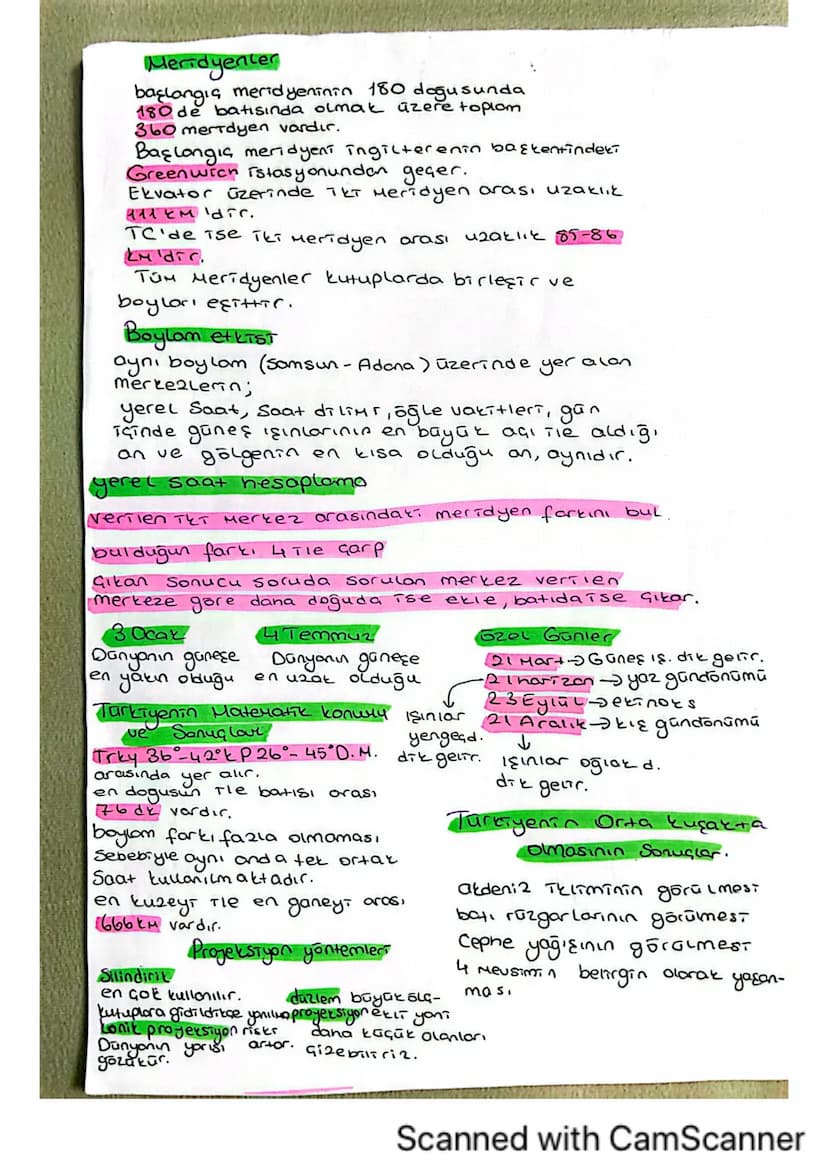 Meridyenler
başlangıç meridyeninin 180 doğusunda
180 de batısında olmak üzere toplam
360 meridyen vardır.
Başlangıç meridyeni ingilterenin başkentindeki
Greenwich istasyonundan geçer.
Ekvator üzerinde iki meridyen arası uzaklık
111 km 'dir.
TC'de ise iki meridyen arası uzaklık 85-86
km'dir.
Tüm meridyenler kutuplarda birleşir ve
boyları eşittir.
Boylam etkisi
aynı boylam (Samsun - Adana) üzerinde yer alan
merkezlerin;
yerel saat, saat dilimi, öğle vakitleri, gün
içinde güneş ışınlarının en büyük açı ile aldığı
an ve gölgenin en kısa olduğu an, aynıdır.
yerel saat hesaplama
verilen iki merkez arasındaki meridyen farkını bul.
bulduğun farkı 4 ile çarp
Çıkan sonucu soruda sorulan merkez verilen
merkeze göre daha doğuda ise ekle, batıda ise çıkar.
3 Ocak
Dünyanın güneşe
en yakın olduğu
4 Temmuz
Dünyanın güneşe
en uzak olduğu
Özel Günler
21 Mart → Güneş ış. dik gelir.
21 haziran → yaz gündönümü
23 Eylül → ekinoks
21 Aralık → kış gündönümü
ışınlar
yengeçd.
dik gelir.
ışınlar oğlak d.
dik gelir.
Türkiyenin Matematik konumu
ve Sonuçları
Trky 36°-42°K P 26°- 45°D.M.
arasında yer alır.
en doğusun ile batısı arası
76 dk vardır.
boylam farkı fazla olmaması
sebebiyle aynı anda tek ortak
Saat kullanılmaktadır.
en kuzeyi ile en güneyi arası
666 km vardır.
Türkiyenin Orta kuşakta
olmasının Sonuçları.
akdeniz ikliminin görülmesi
batı rüzgarlarının görülmesi
Cephe yağışının görülmesi
4 mevsimin belirgin olarak yaşan-
ması
Projeksiyon yöntemleri
Silindirik
en çok kullanılır.
kutuplara gidildikçe yanılma
riski
artar.
konik projeksiyon
Dünyanın yarısı
gözükür.
düzlem büyük ölç-
projeksiyon ekli yani
daha küçük olanları
çizebiliriz.
Scanned with CamScanner